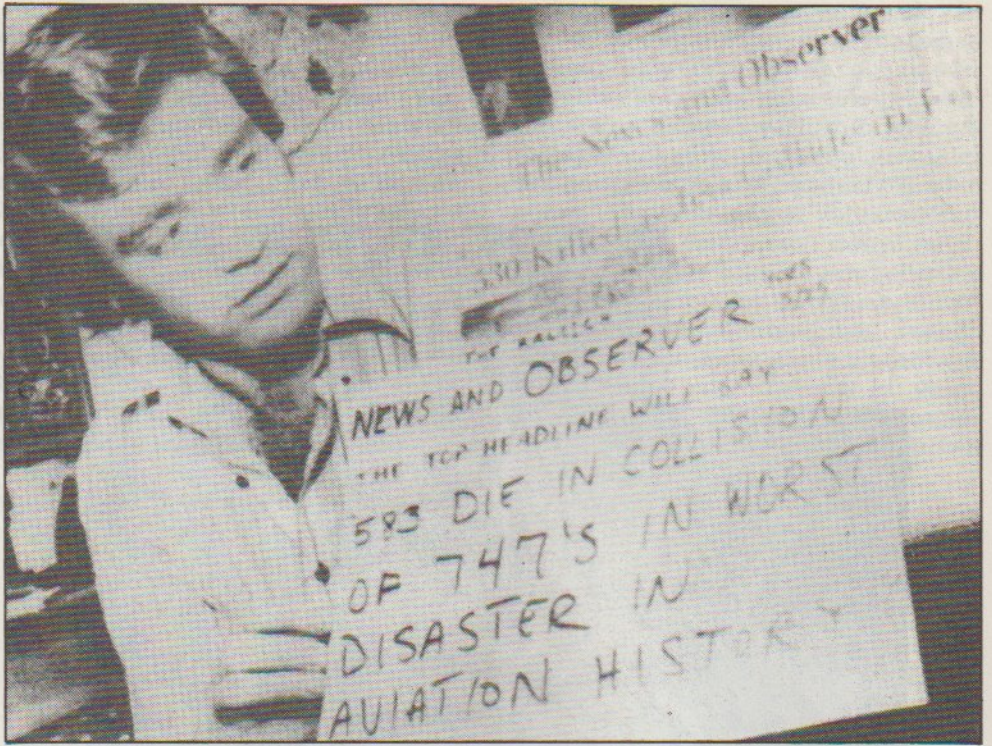 The News and Observer
530 Killed in
THE RALEIGH
NEWS AND OBSERVER TUES
THE TOP HEADLINE WILL SAY
583 DIE IN COLLISION
OF 747'S IN WORST
DISASTER IN
AVIATION HISTORY